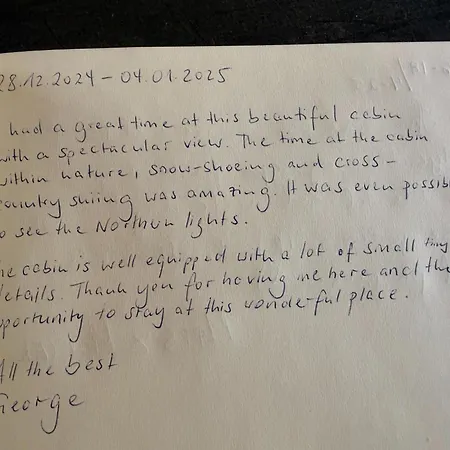 28.12.2024 – 04.01.2025
had a great time at this beautiful cabin
with a spectacular view. The time at the cabin
within nature, snow-shoeing and cross-
country skiing was amazing. It was even possib
to see the Northun lights.
he cabin is well equipped with a lot of small tiny
details. Thank you for having me here and the
pportunity to stay at this wonde-ful place.
All the best
George